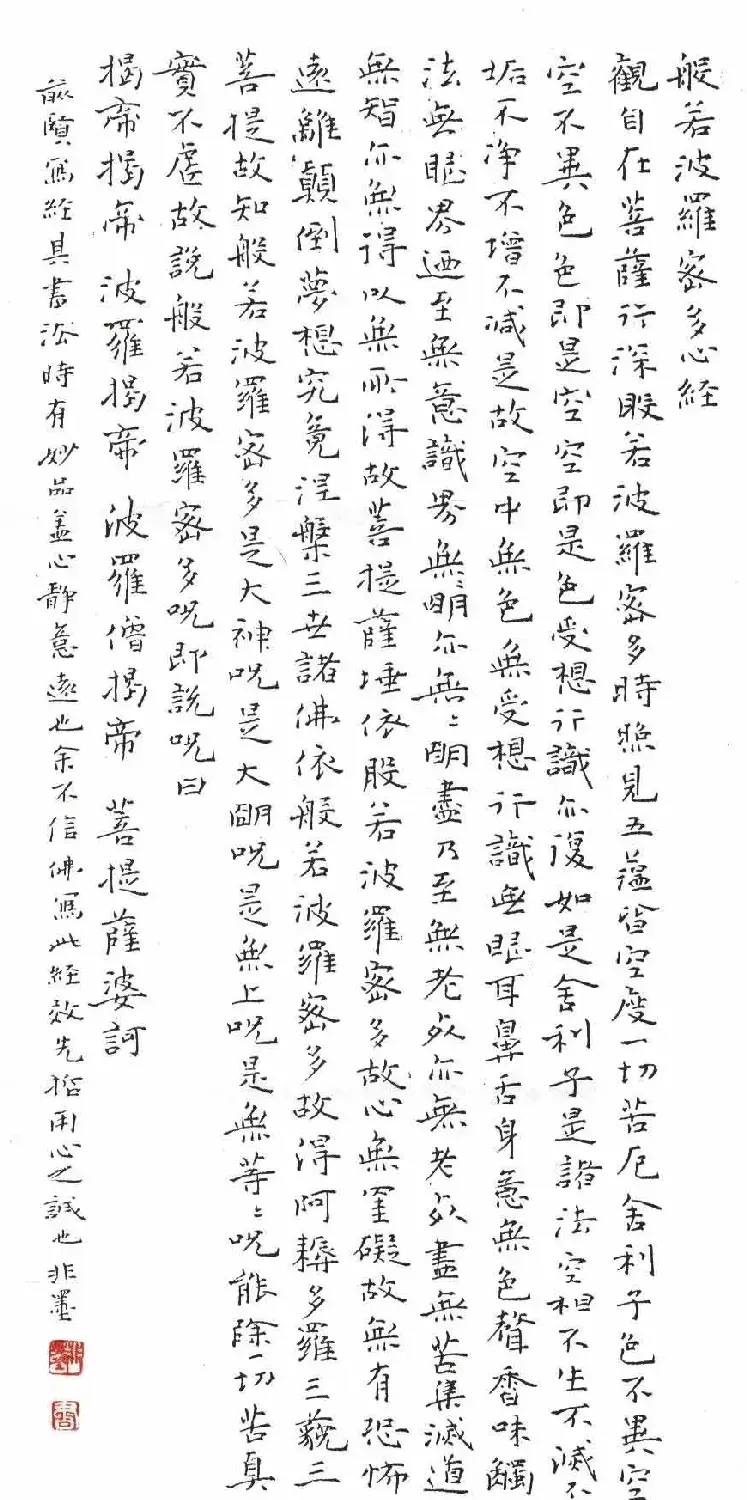 般若波羅密多心経
觀自在菩薩行深般若波羅密多時照見五蘊皆空度一切苦厄舍利子色不異空
空不異色色即是空空即是色受想行識亦復如是舍利子是諸法空相不生不滅不
垢不净不增不减是故空中無色無受想行識無眼耳鼻舌身意無色聲香味觸
法無眼界迺至無意識界無〻明亦無〻明盡乃至無老死亦無老死盡無苦集滅道
無智亦無得以無所得故菩提薩埵依般若波羅密多故心無罣礙故無有恐怖
遠離顛倒夢想究竟涅槃三世諸佛依般若波羅密多故得阿耨多羅三藐三
菩提故知般若波羅密多是大神咒是大明咒是無上咒是無等〻咒能除一切苦真
實不虛故說般若波羅密多咒即說咒曰
揭帝揭帝波羅揭帝 波羅僧揭帝 菩提薩婆訶
前賢寫經具書法時有妙品蓋心静意遠也余不信佛寫此経效先哲用心之誠也非墨